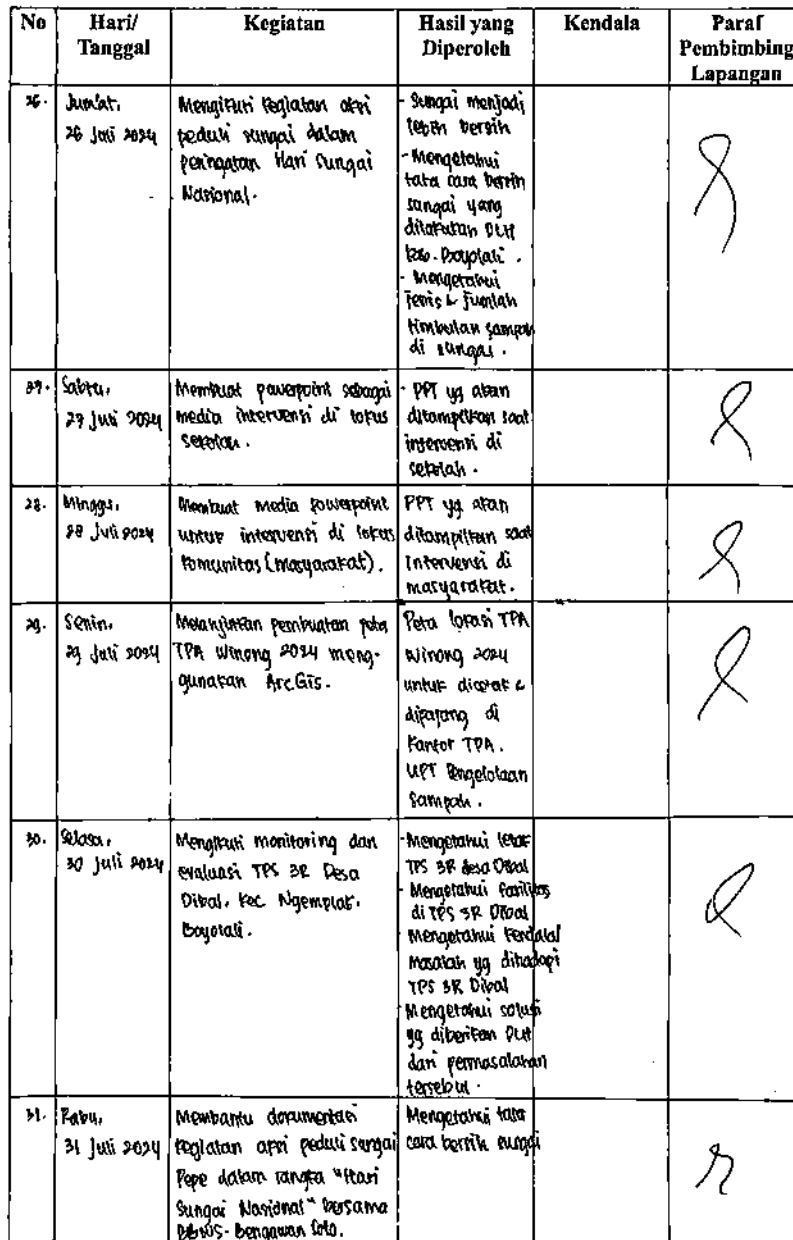 No
Hari/
Tanggal
Kegiatan
Hasil yang
Diperoleh
Kendala
Paraf
Pembimbing
Lapangan
26.
Jum'at,
26 Juli 2024
Mengikuti kegiatan aksi
peduli sungai dalam
peringatan Hari Sungai
Nasional.
- Sungai menjadi
lebih bersih
- Mengetahui
tata cara bersih
sungai yang
dilakukan DLH
Kab. Boyolali.
- Mengetahui
jenis & jumlah
timbulan sampah
di sungai.
27.
Sabtu,
27 Juli 2024
Membuat powerpoint sebagai
media intervensi di lokus
sekolah.
- PPT yg akan
ditampilkan saat
intervensi di
sekolah.
28.
Minggu,
28 Juli 2024
Membuat media powerpoint
untuk intervensi di lokus
komunitas (masyarakat).
PPT yg akan
ditampilkan saat
intervensi di
masyarakat.
29.
Senin,
29 Juli 2024
Melanjutkan pembuatan peta
TPA Winong 2024 meng-
gunakan ArcGis.
Peta lokasi TPA
Winong 2024
untuk dicetak &
dipajang di
Kantor TPA.
UPT Pengelolaan
Sampah.
30.
Selasa,
30 Juli 2024
Mengikuti monitoring dan
evaluasi TPS 3R Desa
Dibal, Kec Ngemplak,
Boyolali.
- Mengetahui letak
TPS 3R desa Dibal
- Mengetahui fasilitas
di TPS 3R Dibal
- Mengetahui kendala/
masalah yg dihadapi
TPS 3R Dibal
- Mengetahui solusi
yg diberikan DLH
dari permasalahan
tersebut.
31.
Rabu,
31 Juli 2024
Membantu dokumentasi
kegiatan aksi peduli sungai
Pepe dalam rangka "Hari
Sungai Nasional" bersama
BBWS-Bengawan Solo.
Mengetahui tata
cara bersih sungai